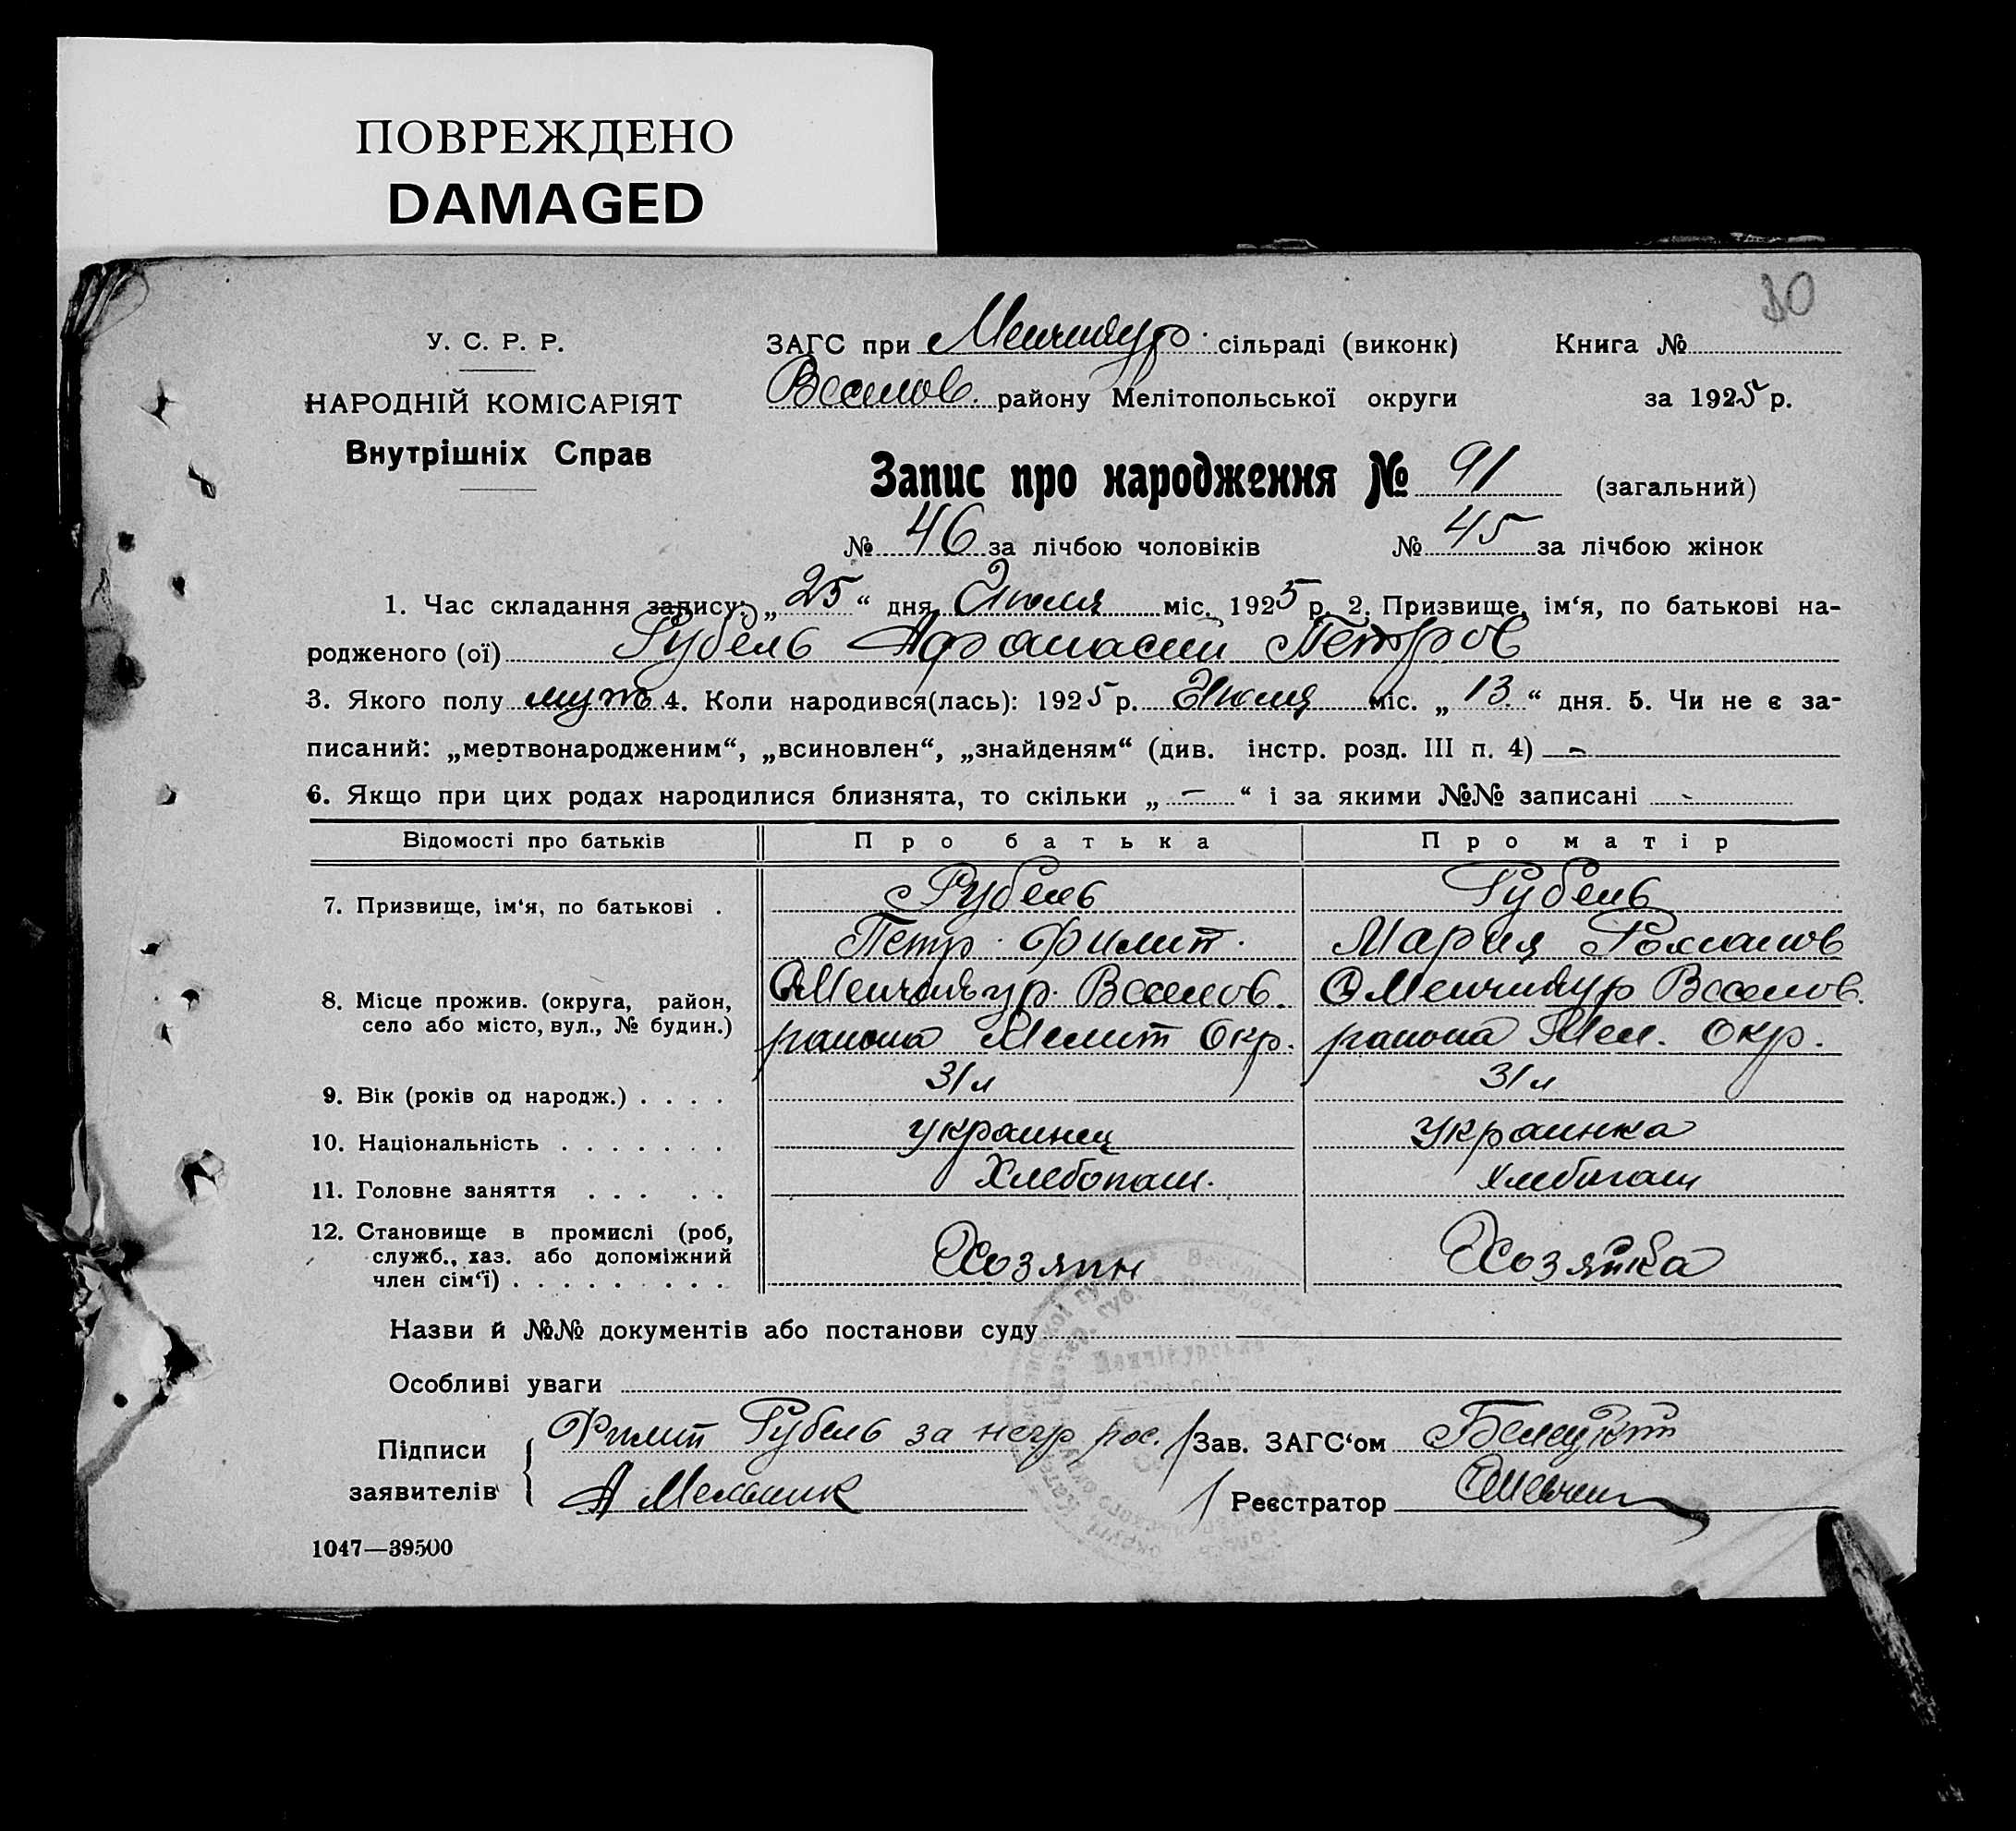 ПОВРЕЖДЕНО
DAMAGED
30
У. С. Р. Р.
НАРОДНІЙ КОМІСАРІЯТ
Внутрішніх Справ
ЗАГС при Менчикур. сільраді (виконк) Книга №
Веселов. району Мелітопольської округи за 1925 р.
Запис про народження № 91 (загальний)
№ 46 за лічбою чоловіків № 45 за лічбою жінок
1. Час складання запису: „ 25 “ дня Июля міс. 1925 р. 2. Призвище, ім‘я, по батькові на-
родженого (ої) Рубель Афанасий Петров
3. Якого полу муж 4. Коли народився(лась): 1925 р. Июля міс. „ 13. “ дня. 5. Чи не є за-
писаний: „мертвонародженим“, „всиновлен“, „знайденям“ (див. інстр. розд. III п. 4) -
6. Якщо при цих родах народилися близнята, то скільки „ — “ і за якими №№ записані -
Відомості про батьків Про батька Про матір
7. Призвище, ім‘я, по батькові . Рубель Рубель
Петр Филип. Мария Романов
8. Місце прожив. (округа, район, С Менчикур. Веселов. С Менчикур Веселов.
село або місто, вул., № будин.) района Мелит Окр. района Мел. Окр.
9. Вік (років од народж.) . . . . 31 л 31 л
10. Національність . . . . . . . украинец украинка
11. Головне заняття . . . . . Хлебопаш. хлебопаш
12. Становище в промислі (роб,
служб., хаз. або допоміжний
член сім‘ї) . . . . . . . . . Хозяин Хозяйка
Назви й №№ документів або постанови суду
Особливі уваги
Підписи Филип Рубель за негр рос. Зав. ЗАГС‘ом
заявителів А Мельник Реєстратор
1047—39500